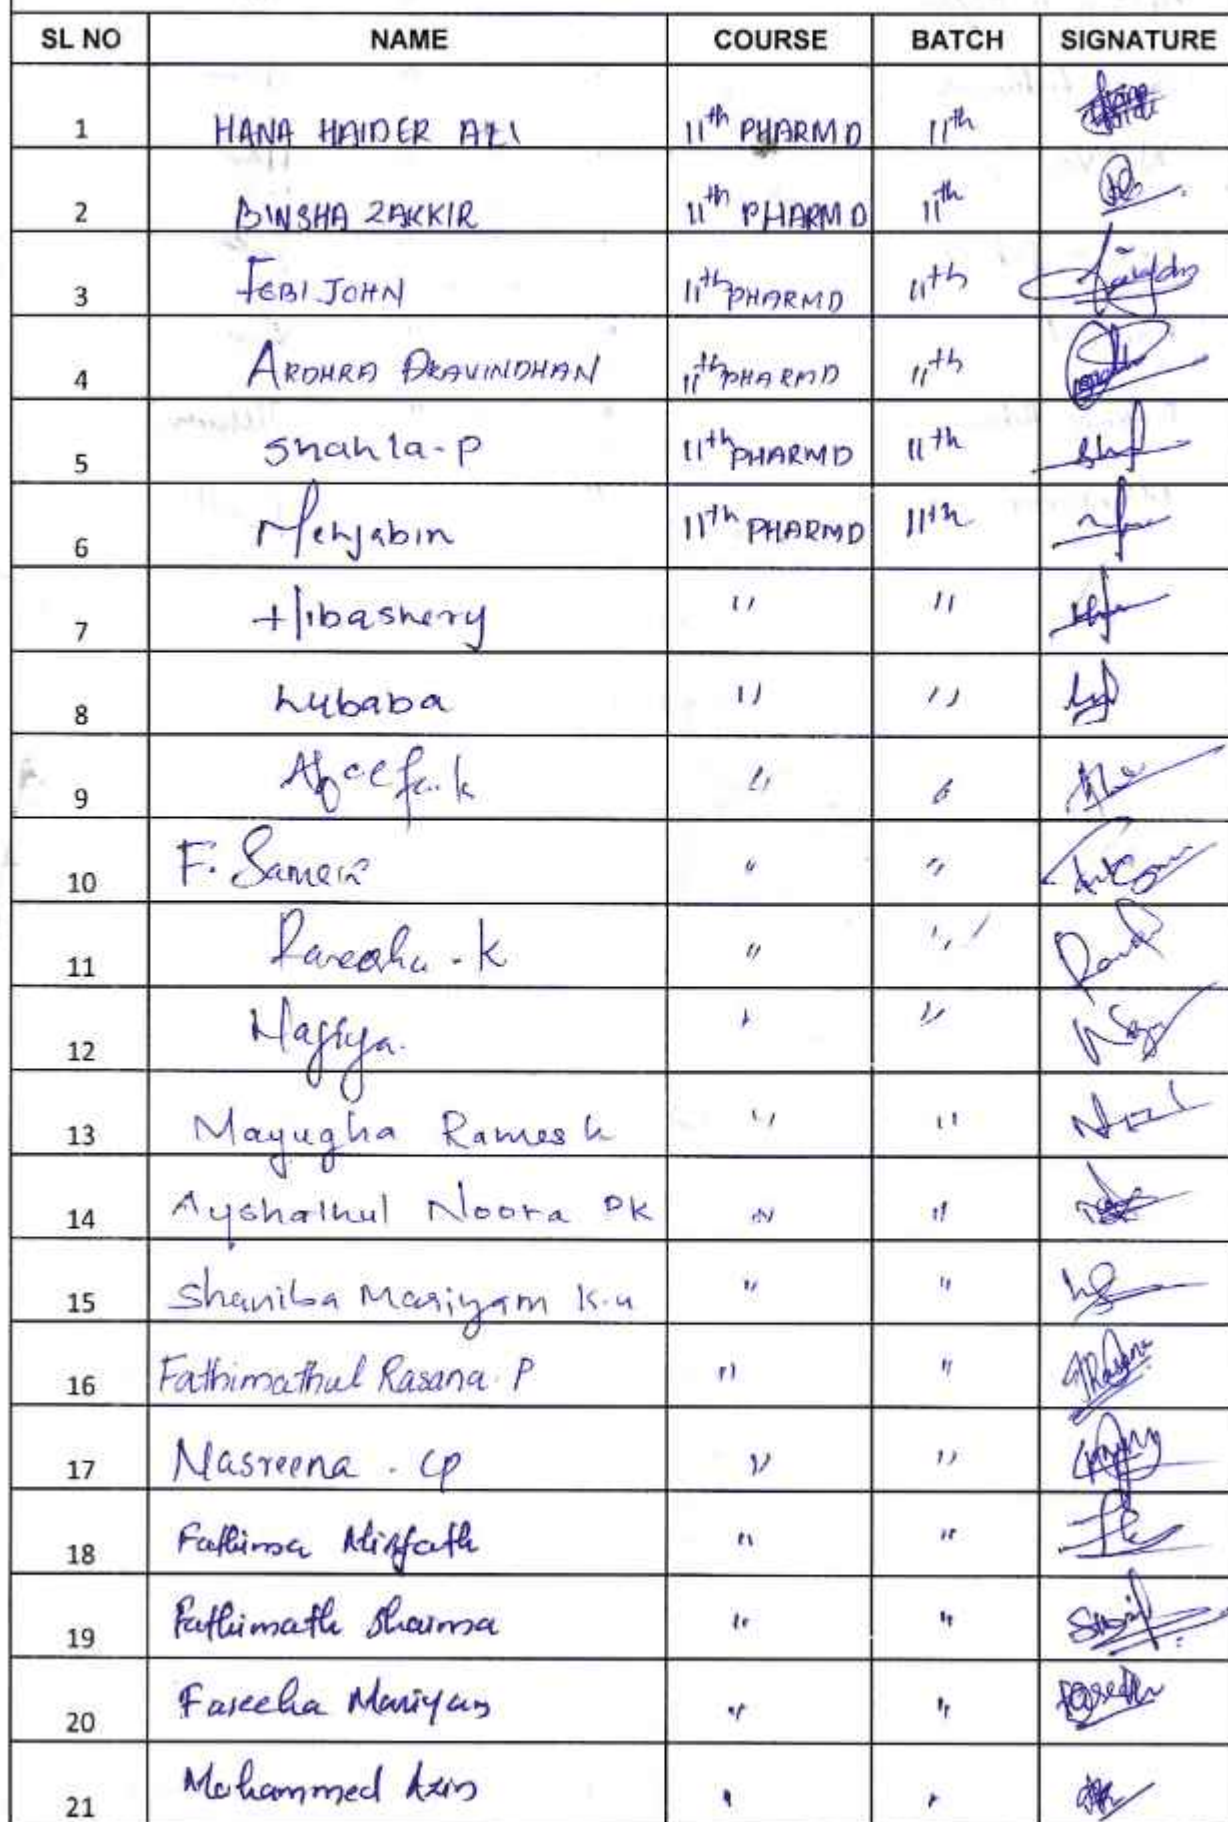 SL NO NAME COURSE BATCH SIGNATURE
1 HANA HAIDER ALI 11th PHARM D 11th
2 BINSHA ZAKKIR 11th PHARM D 11th
3 FEBI JOHN 11th PHARMD 11th
4 ARDHRA PRAVINDHAN 11th PHARMD 11th
5 Shahla-P 11th PHARMD 11th
6 Mehjabin 11th PHARMD 11th
7 Hibashery " "
8 Lubaba " "
9 K " "
10 F. " "
11 K " "
12 " "
13 Mayugha Ramesh " "
14 Ayshathul Noora PK " "
15 Shaniba Mariyam K.U " "
16 Fathimathul Rasana. P " "
17 Nasreena . CP " "
18 Fathima " "
19 Fathimath Shaima " "
20 Faseeha Mariyam " "
21 Mohammed Azin " "